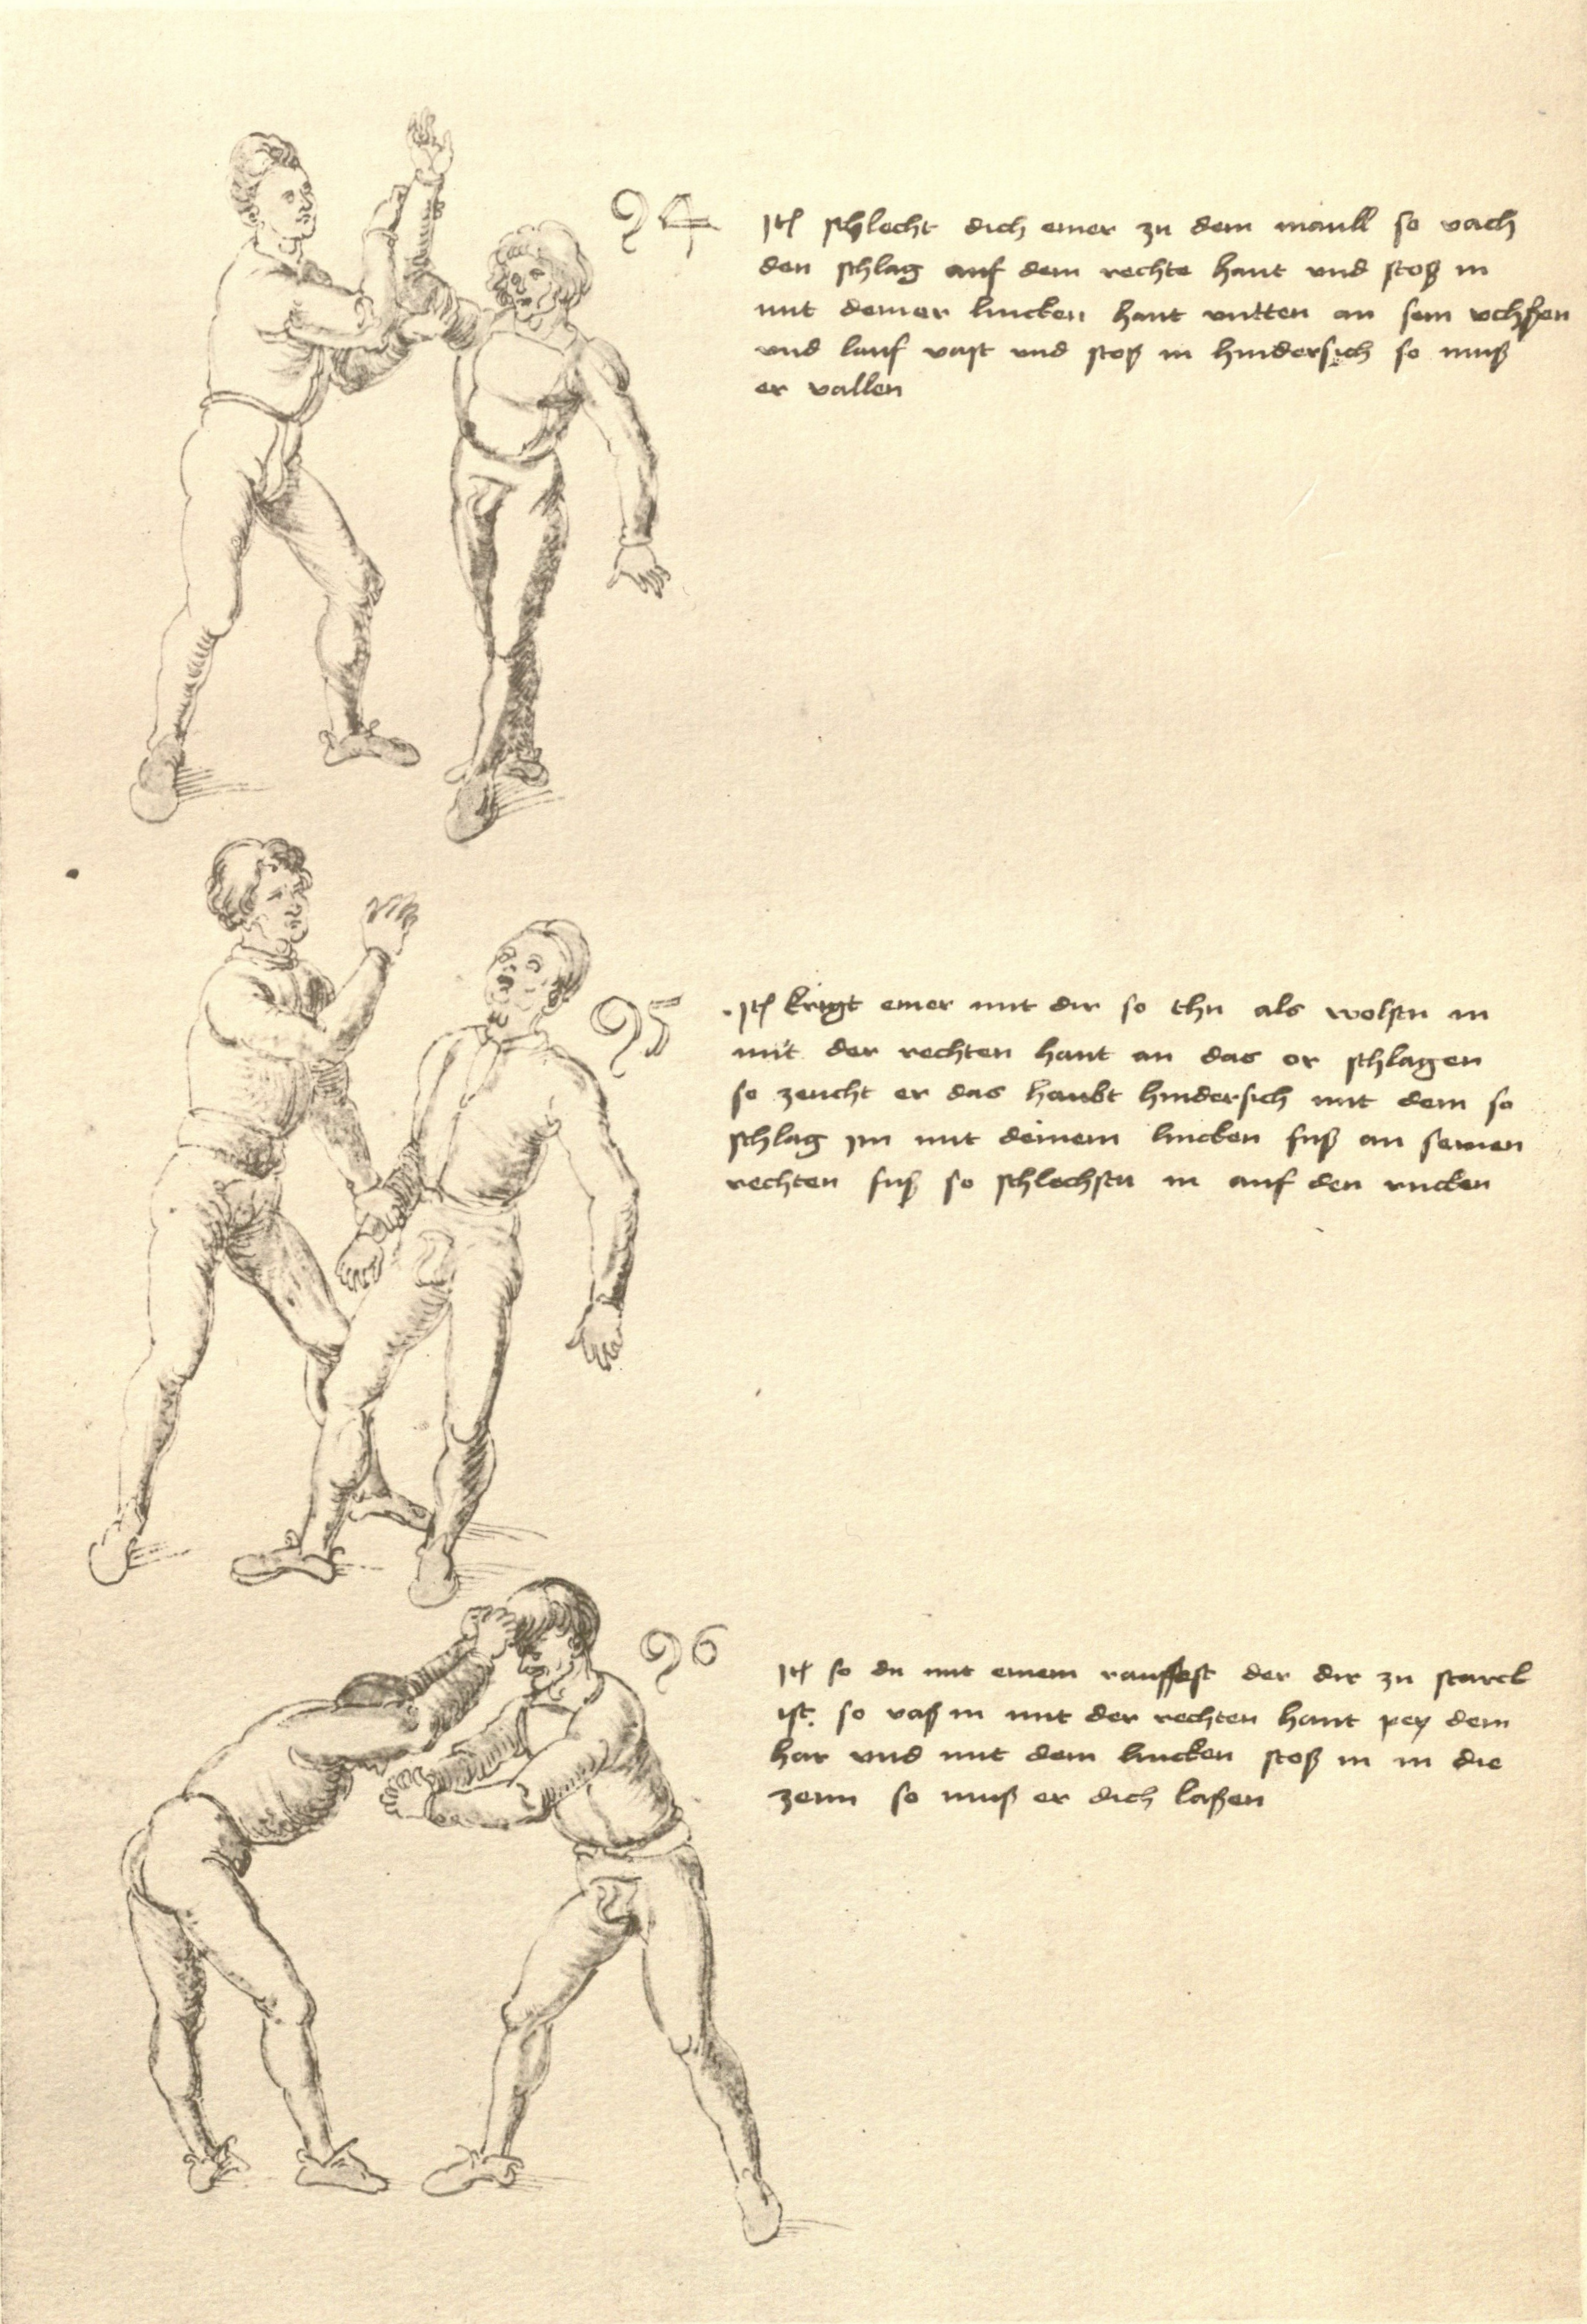 94
Itl schlecht dich einer zu dem maull so vach
den schlag auf dem rechte hant und stoß in
mit deiner lincken hant untten an sein uchßen
und lauf vast und stoß in hindersich so muß
er vallen
95
Itl krigt einer mit dir so thu als wolstu in
mit der rechten hant an das or schlagen
so zeucht er das haubt hindersich mit dem so
schlag im mit deinem lincken fuß an seinen
rechten fuß so schlechstu in auf den rucken
96
Itl so du mit einem rauffest der dir zu starck
ist. so vaß in mit der rechten hant pey dem
har und mit dem lincken stoß in in die
zenn so muß er dich laßen